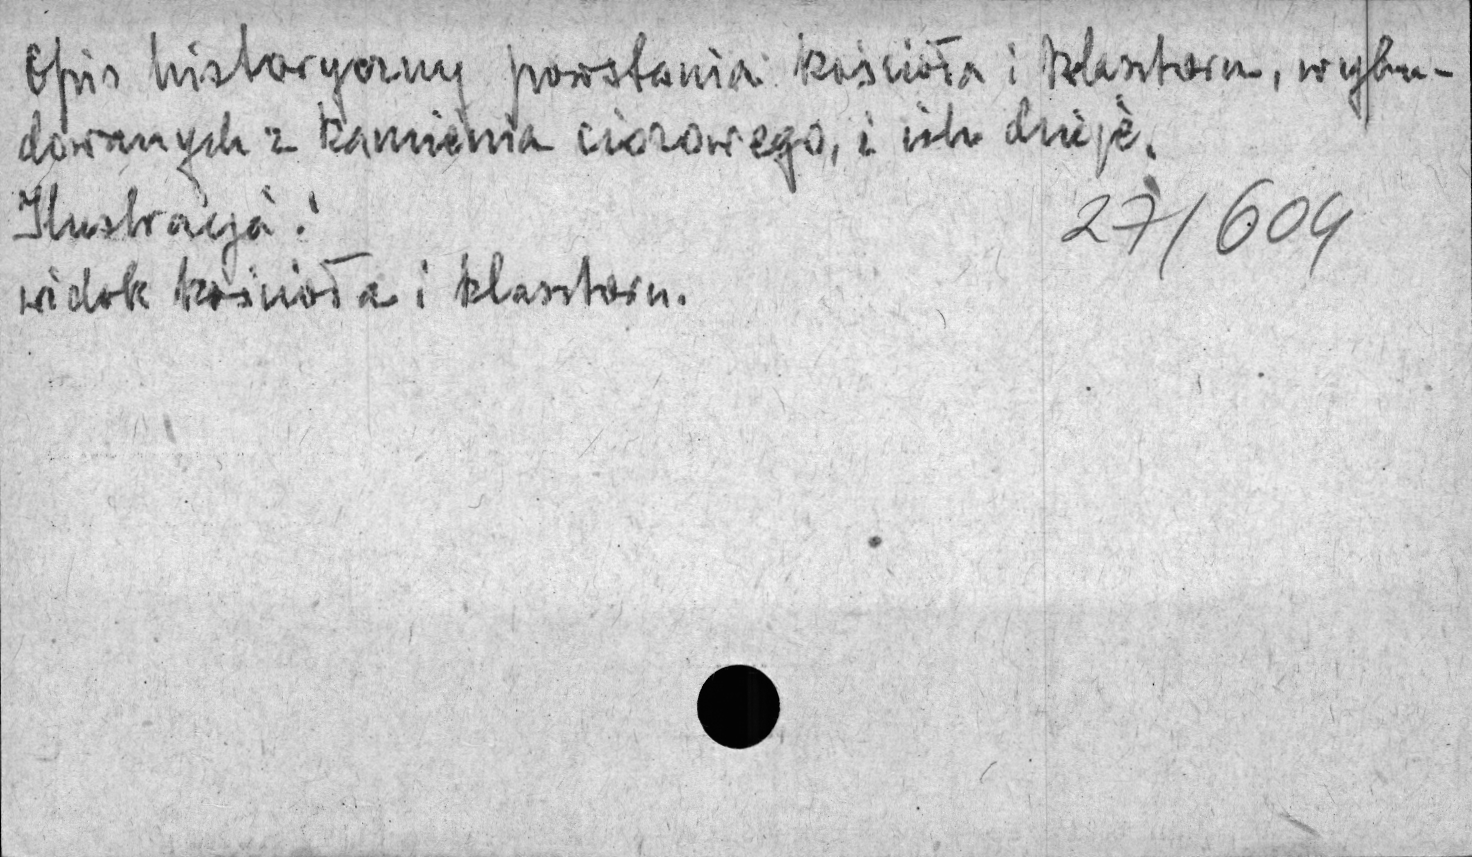 Opis historyczny powstania kościoła i klasztoru, wybu-
dowanych z kamienia ciosowego, i ich dzieje.
Ilustracja:
27/604
widok kościoła i klasztoru.